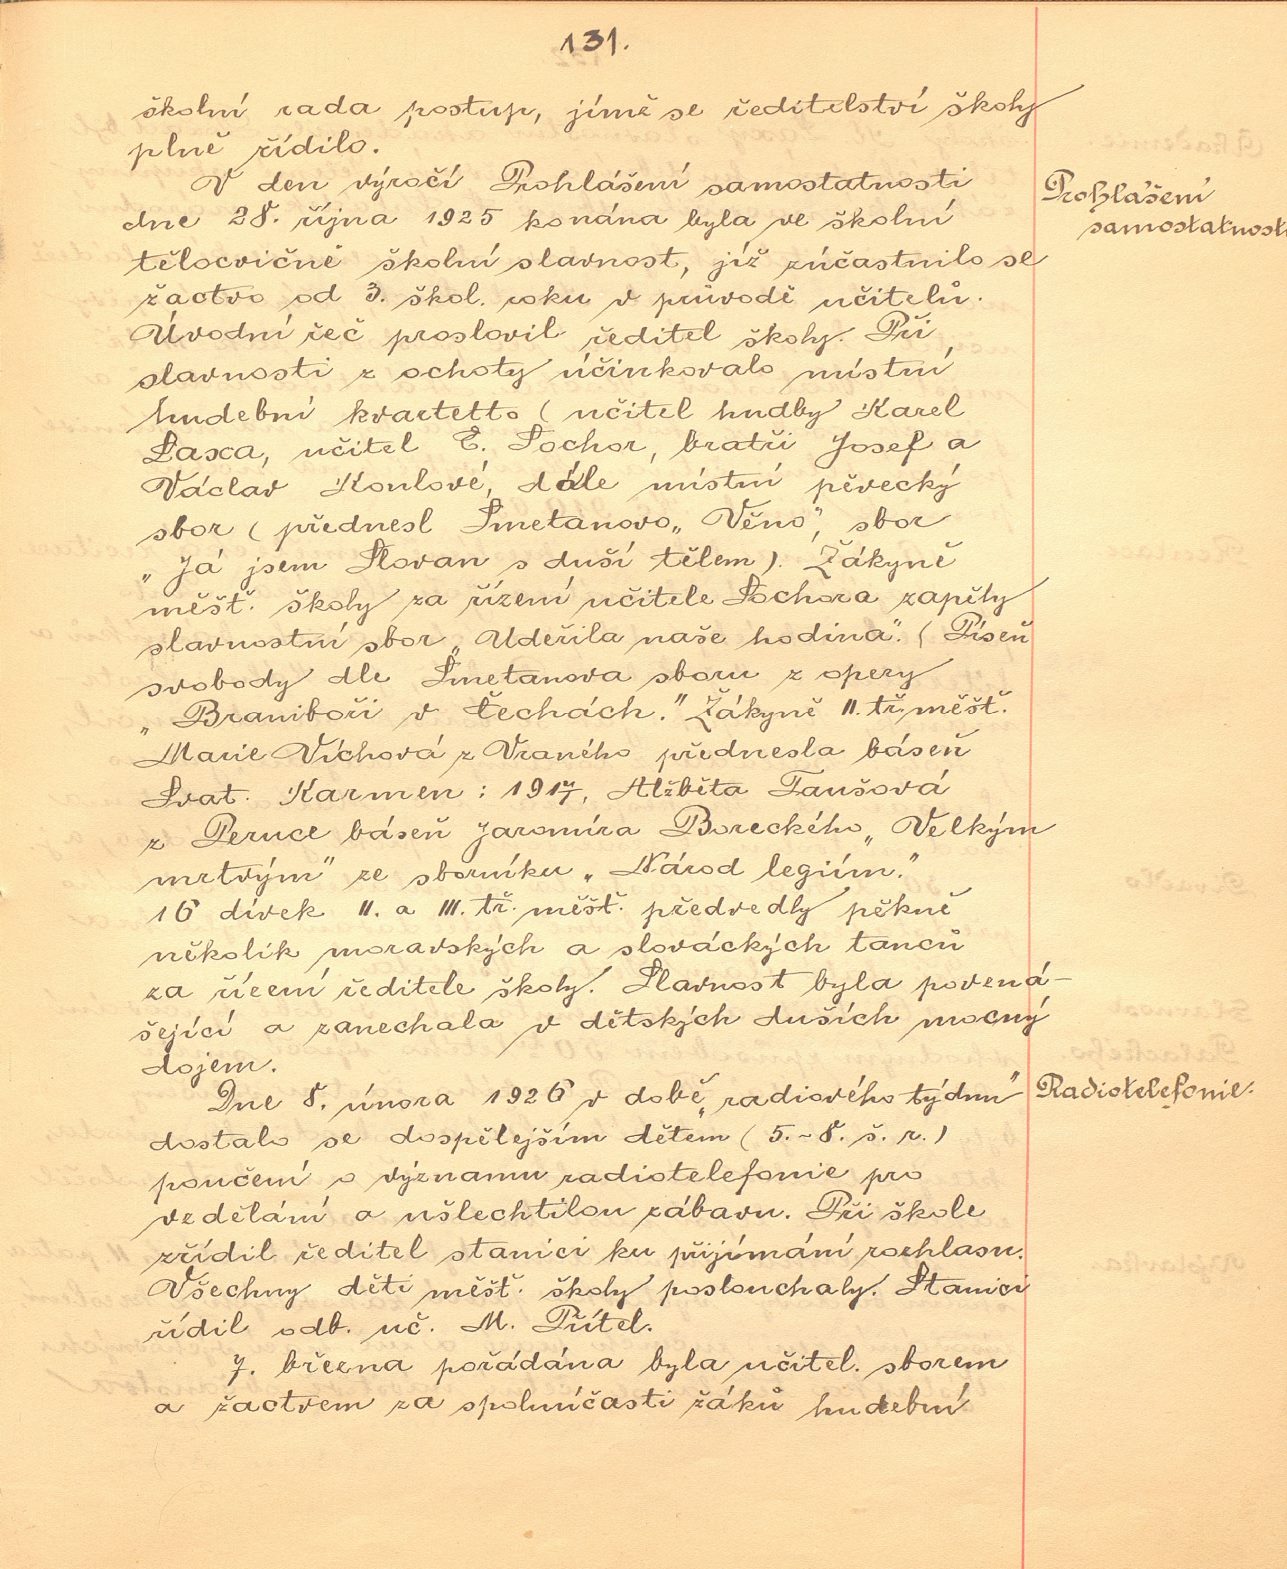 131.
školní rada postup, jímž se ředitelství školy
plně řídilo.
V den výročí Prohlášení samostatnosti
Prohlášení
samostatnosti
dne 28. října 1925 konána byla ve školní
tělocvičně školní slavnost, jíž zúčastnilo se
žactvo od 3. škol. roku v průvodě učitelů.
Úvodní řeč proslovil ředitel školy. Při
slavnosti z ochoty účinkovalo místní
hudební kvartetto ( učitel hudby Karel
Saxa, učitel E. Sochor, bratři Josef a
Václav Koulové, dále místní pěvecký
sbor ( přednesl Smetanovo „ Věno", sbor
„ Já jsem Slovan s duší tělem ). Žákyně
měšť. školy za řízení učitele Sochora zapěly
slavnostní sbor „ Udeřila naše hodina". ( Píseň
svobody dle Smetanova sboru z opery
„ Braniboři v Čechách." Žákyně II. tř. měšť.
Marie Víchová z Vraného přednesla báseň
Svat. Karmen : 1917, Alžběta Taušová
z Peruce báseň Jaromíra Boreckého „ Velkým
mrtvým" ze sborníku „ Národ legiím."
16 dívek II. a III. tř. měšť. předvedly pěkně
několik moravských a slováckých tanců
za řízení ředitele školy. Slavnost byla povzná-
šející a zanechala v dětských duších mocný
dojem.
Dne 8. února 1926 v době „ radiového týdnu"
Radiotelefonie.
dostalo se dospělejším dětem ( 5. - 8. š. r. )
poučení o významu radiotelefonie pro
vzdělání a ušlechtilou zábavu. Při škole
zřídil ředitel stanici ku přijímání rozhlasu.
Všechny děti měšť. školy poslouchaly. Stanici
řídil odb. uč. M. Přítel.
7. března pořádána byla učitel. sborem
a žactvem za spoluúčasti žáků hudební